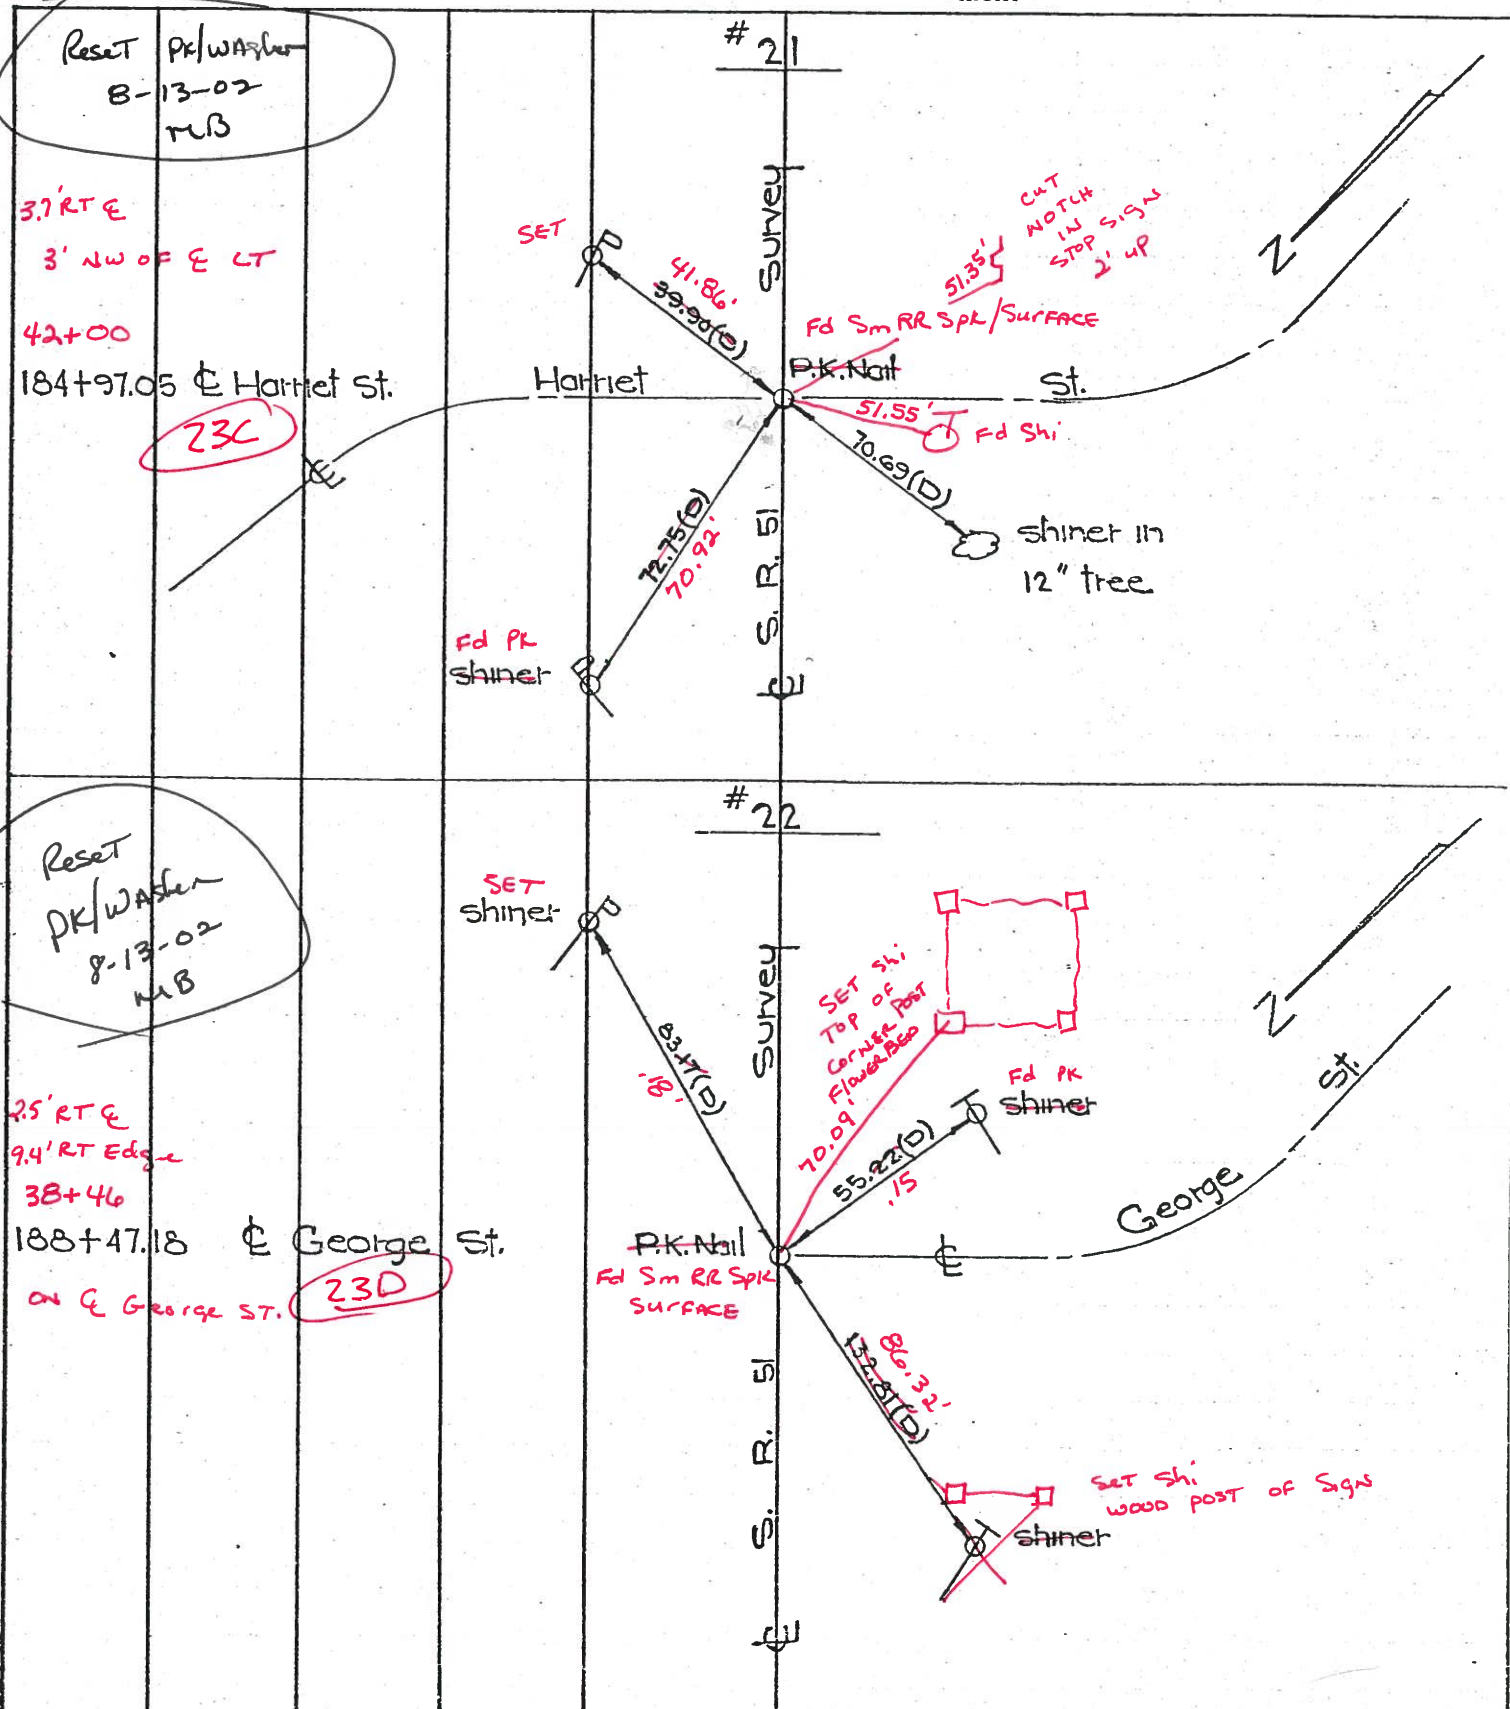 # 21
Reset PK/Washer
8-13-02
MB
3.7' RT ℄
3' NW OF ℄ LT
42+00
184+97.05 ℄ Harriet St.
23C
SET
P
41.86'
39.90(D)
Survey
51.35'
CUT
NOTCH
IN
STOP SIGN
2' UP
N
Fd Sm RR Spk/SURFACE
P.K. Nail
Harriet
St.
℄
51.55'
T
Fd Shi
70.69(D)
shiner in
12" tree
72.75(D)
70.92'
S. R. 51
Fd PK
shiner
P
℄
# 22
Reset
PK/Washer
8-13-02
MB
2.5' RT ℄
9.4' RT Edge
38+46
188+47.18 ℄ George St.
ON ℄ George ST.
23D
SET
shiner
P
83.17(D)
.18'
Survey
SET Shi
TOP OF
CORNER POST
FlowerBED
70.09'
N
Fd PK
shiner
T
55.22(D)
.15
George St.
℄
P.K. Nail
Fd Sm RR Spk
SURFACE
86.32'
132.81(D)
S. R. 51
SET Shi
WOOD POST OF SIGN
T
shiner
℄